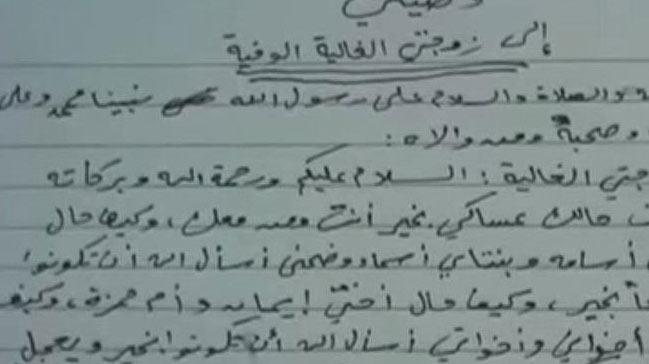 وصيتي
إلى زوجتي الغالية الوفية
ه والصلاة والسلام على رسول الله نبينا محمد وعلى
وصحبه ومن والاه :
جتي الغالية : السلام عليكم ورحمة الله وبركاته
حالك عساكي بخير أنت ومن معك ، وكيف حال
أسامه وبنتاي أسماء وضحى أسأل الله أن تكونوا
بخير ، وكيف حال أختي إيمان وأم حمزة ، وكيف
أخواي وأخواتي أسأل الله أن تكونوا بخير ويجعل